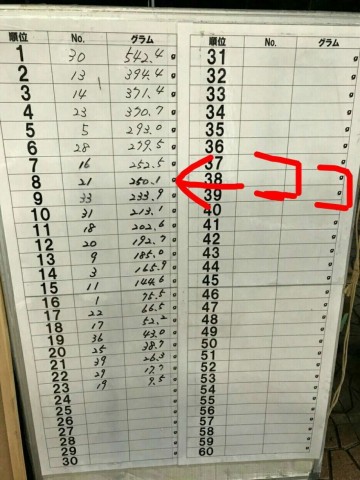 順位 No. グラム
1 30 542.4 g
2 13 394.4 g
3 14 371.4 g
4 23 330.7 g
5 5 293.0 g
6 28 279.5 g
7 16 252.5 g
8 21 250.1 g
9 33 233.9 g
10 31 213.1 g
11 18 202.6 g
12 20 192.7 g
13 9 185.0 g
14 3 165.9 g
15 11 144.6 g
16 1 75.5 g
17 22 66.5 g
18 17 52.2 g
19 36 43.0 g
20 25 38.7 g
21 39 26.3 g
22 29 17.7 g
23 19 9.5 g
24 g
25 g
26 g
27 g
28 g
29 g
30 g
順位 No. グラム
31 g
32 g
33 g
34 g
35 g
36 g
37 g
38 g
39 g
40 g
41 g
42 g
43 g
44 g
45 g
46 g
47 g
48 g
49 g
50 g
51 g
52 g
53 g
54 g
55 g
56 g
57 g
58 g
59 g
60 g